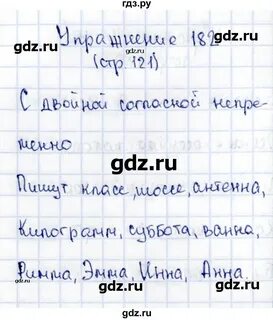 gdz.ru
Упражнение 182
(стр. 121)
gdz.ru
С двойной согласной непре-
менно
gdz.ru
gdz.ru
Пишут класс, шоссе, антенна,
Килограмм, суббота, ванна,
gdz.ru
gdz.ru
Римма, Эмма, Инна, Анна.
gdz.ru